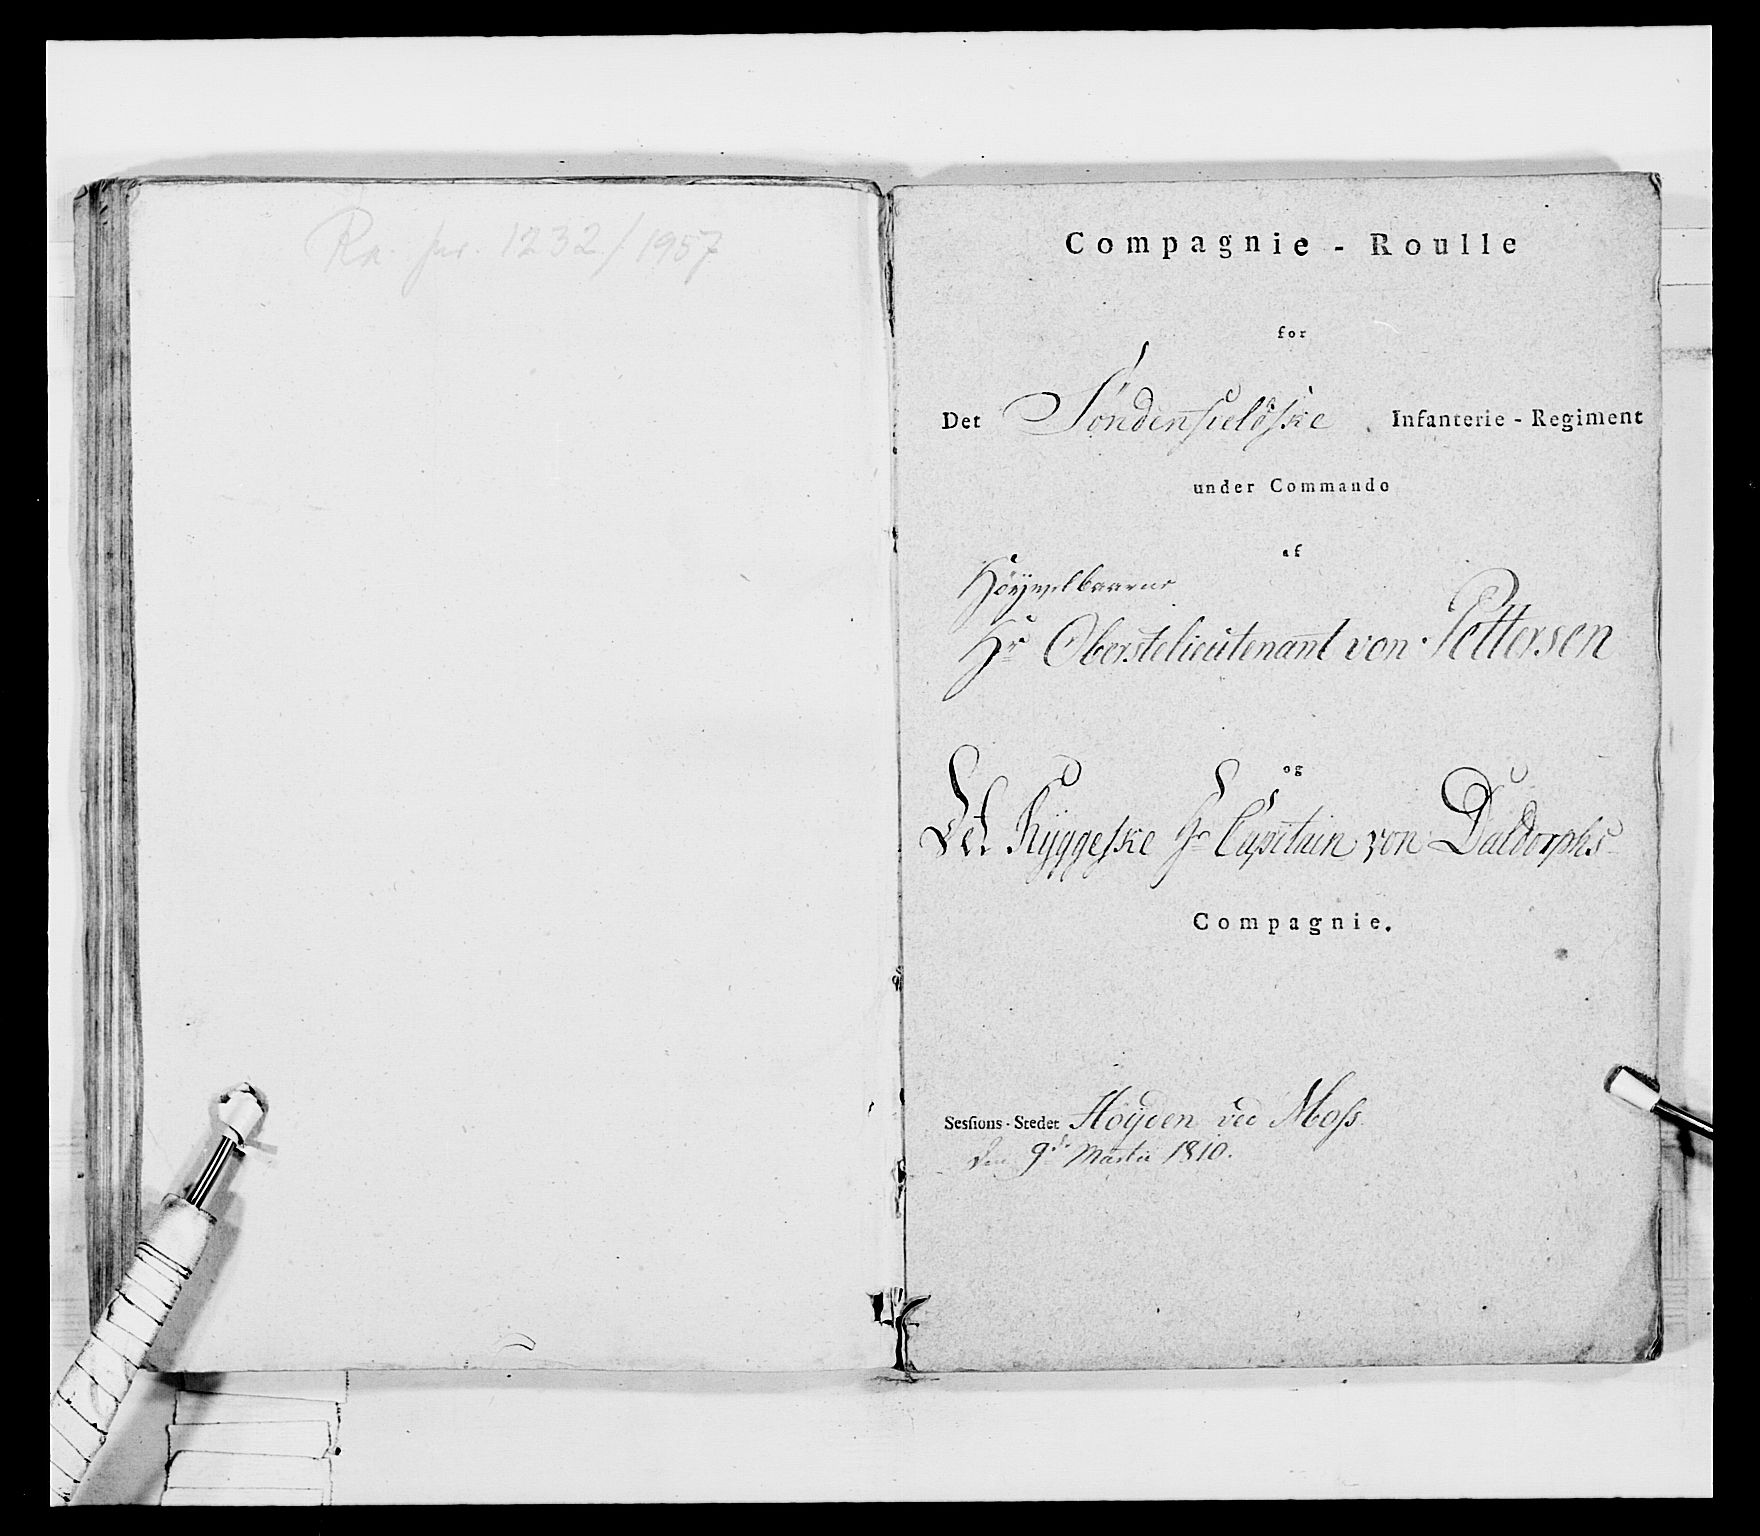 Ra. jnr. 1232/1957
Compagnie - Roulle
for
Det Søndenfieldske Infanterie - Regiment
under Commando
af
Høyvelbaarne
Hr Oberstelieutenant von Pettersen
og
Det Ryggeske Hr Capitain von Daldorphs
Compagnie.
Sesſions - Stedet Høyden ved Moſs
den 9de Martii 1810.